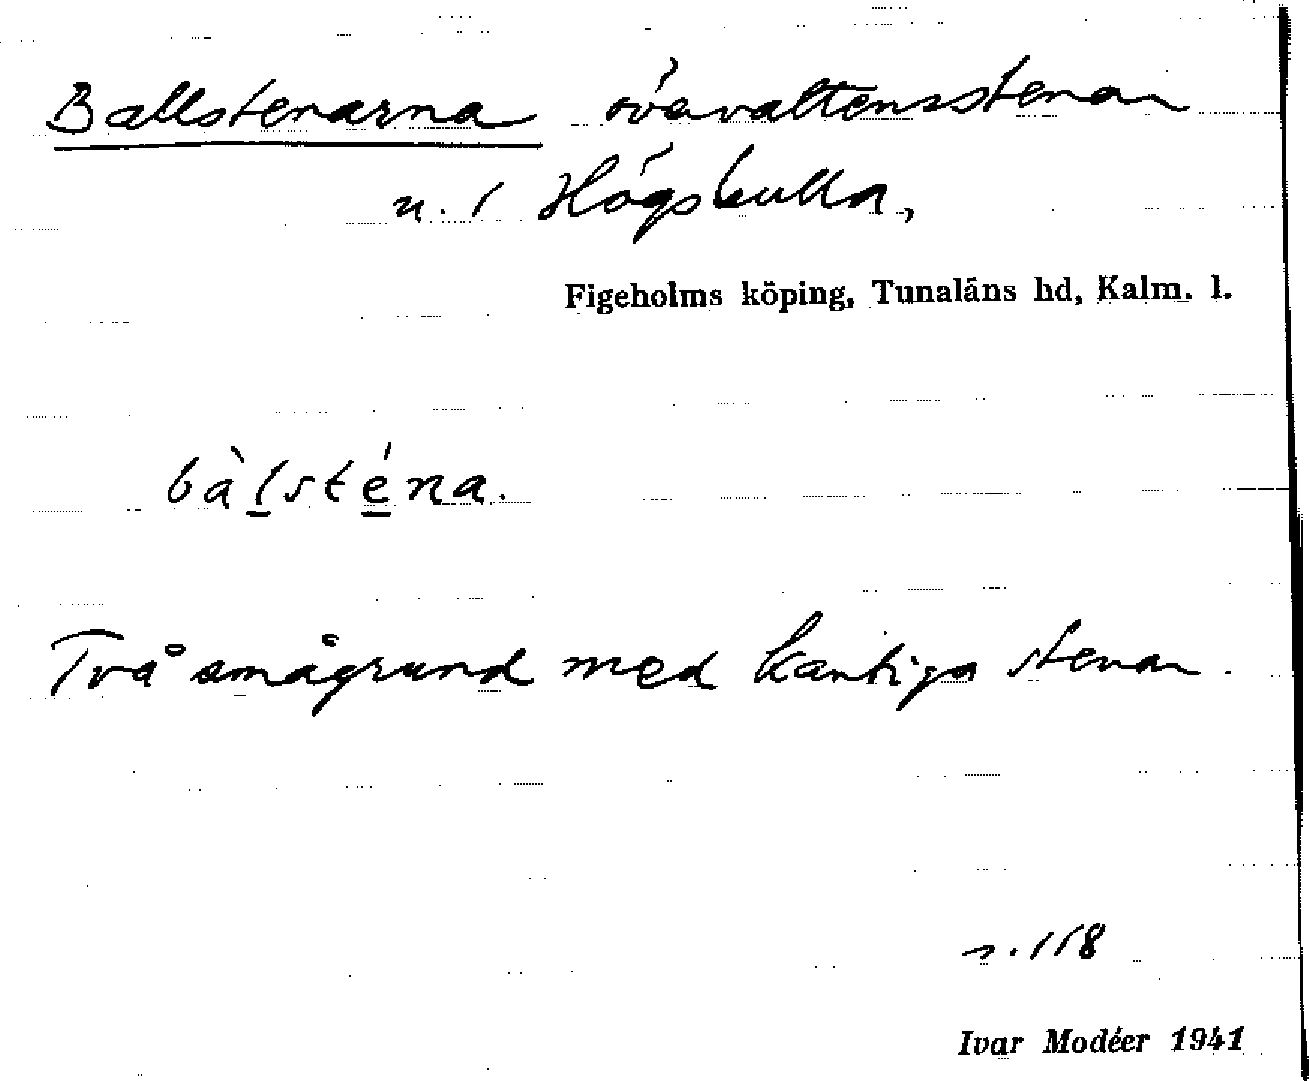 Ballstenarna övavattensstenar
n. 1 Högskulla,
Figeholms köping, Tunaläns hd, Kalm. l.
bàlsténa.
Två smågrund med kantiga stenar.
s. 118
Ivar Modéer 1941